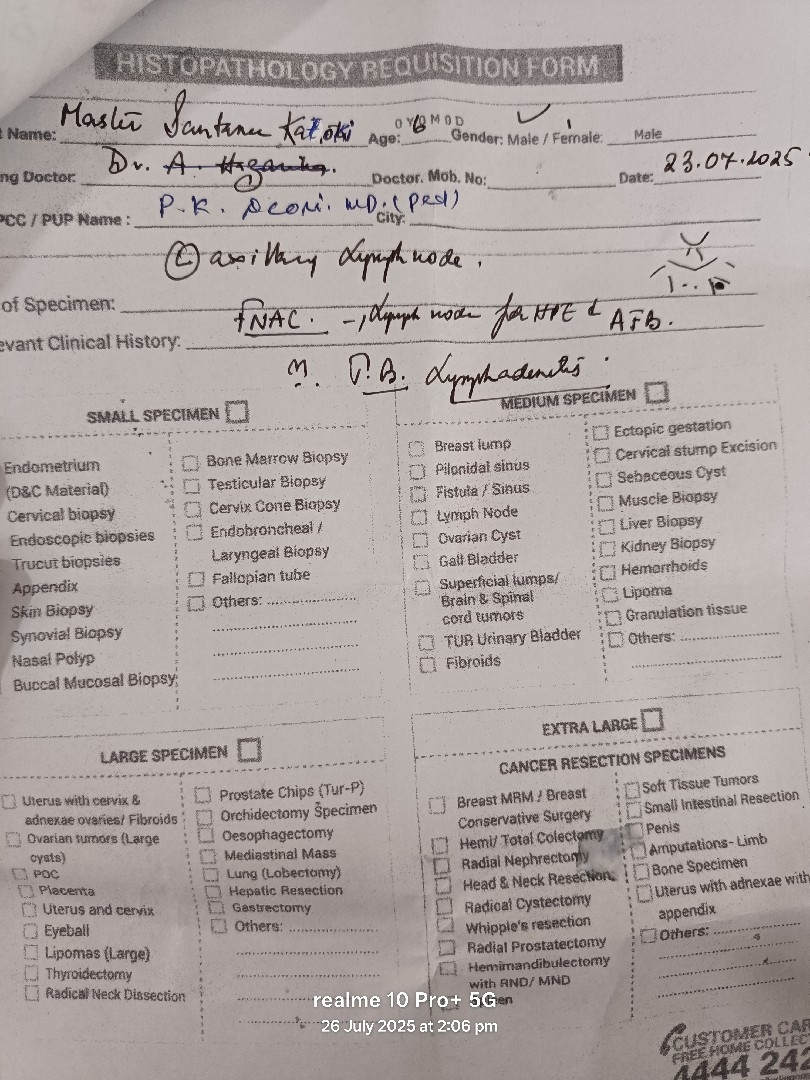 HISTOPATHOLOGY REQUISITION FORM
t Name: Master Santanu Katoki Age: 0 Y 6 M 0 D Gender: Male / Female: Male
ng Doctor: Dr. A. Doctor. Mob. No: Date: 23.07.2025
PCC / PUP Name : P.K. Deori. MD. (Ped) City:
(L) axillary Lymph node.
of Specimen:
FNAC. -, Lymph node for HPE & AFB.
evant Clinical History:
T.B. Lymphadenitis.
SMALL SPECIMEN
Endometrium
(D&C Material)
Cervical biopsy
Endoscopic biopsies
Trucut biopsies
Appendix
Skin Biopsy
Synovial Biopsy
Nasal Polyp
Buccal Mucosal Biopsy
Bone Marrow Biopsy
Testicular Biopsy
Cervix Cone Biopsy
Endobroncheal /
Laryngeal Biopsy
Fallopian tube
Others:
MEDIUM SPECIMEN
Breast lump
Pilonidal sinus
Fistula / Sinus
Lymph Node
Ovarian Cyst
Gall Bladder
Superficial lumps/
Brain & Spinal
cord tumors
TUR Urinary Bladder
Fibroids
Ectopic gestation
Cervical stump Excision
Sebaceous Cyst
Muscle Biopsy
Liver Biopsy
Kidney Biopsy
Hemorrhoids
Lipoma
Granulation tissue
Others:
LARGE SPECIMEN
Uterus with cervix &
adnexae ovaries/ Fibroids
Ovarian tumors (Large
cysts)
POC
Placenta
Uterus and cervix
Eyeball
Lipomas (Large)
Thyroidectomy
Radical Neck Dissection
Prostate Chips (Tur-P)
Orchidectomy Specimen
Oesophagectomy
Mediastinal Mass
Lung (Lobectomy)
Hepatic Resection
Gastrectomy
Others:
EXTRA LARGE
CANCER RESECTION SPECIMENS
Breast MRM / Breast
Conservative Surgery
Hemi/ Total Colectomy
Radial Nephrectomy
Head & Neck Resection
Radical Cystectomy
Whipple's resection
Radial Prostatectomy
Hemimandibulectomy
with RND/ MND
en
Soft Tissue Tumors
Small Intestinal Resection
Penis
Amputations- Limb
Bone Specimen
Uterus with adnexae with
appendix
Others:
realme 10 Pro+ 5G
26 July 2025 at 2:06 pm
CUSTOMER CAR
FREE HOME COLLEC
4444 242